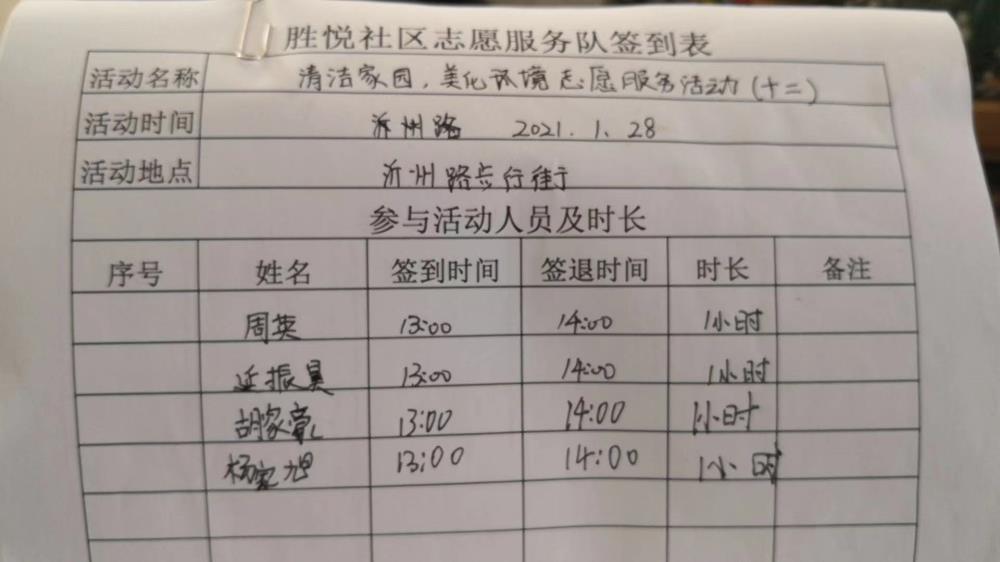 胜悦社区志愿服务队签到表
活动名称 清洁家园，美化环境志愿服务活动(十二)
活动时间 沂州路 2021.1.28
活动地点 沂州路步行街
参与活动人员及时长
序号 姓名 签到时间 签退时间 时长 备注
周英 13:00 14:00 1小时
延振昊 13:00 14:00 1小时
胡家豪 13:00 14:00 1小时
杨宪旭 13:00 14:00 1小时